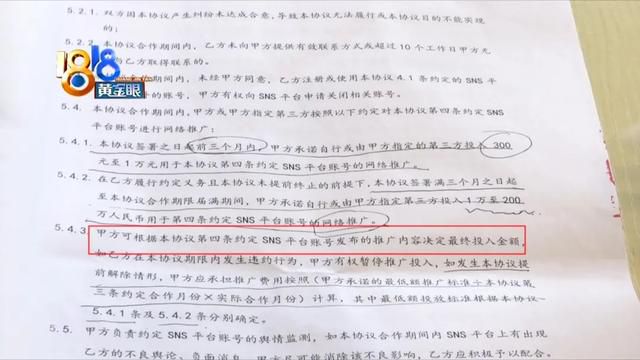 5.2.1. 双方因本协议产生纠纷未达成合意，导致本协议无法履行或本协议目的不能实现
的；
5.2.2. 本协议合作期间内，乙方未向甲方提供有效联系方式或超过10个工作日甲方无
与乙方取得联系的。
期间内，未经甲方同意，乙方注册或使用本协议4.1条约定的SNS平
外的账号，甲方有权向SNS平台申请关闭相关账号。
5.4. 本协议合作期间内，甲方或甲方指定第三方按照以下约定对本协议第四条约定SNS
平台账号进行网络推广：
5.4.1. 本协议签署之日起前三个月内，甲方承诺自行或由甲方指定的第三方投入300
元至1万元用于本协议第四条约定SNS平台账号的网络推广。
5.4.2. 在乙方履行约定义务且本协议未提前终止的前提下，本协议签署满三个月之日起
至本协议合作期限届满期间，甲方承诺自行或由甲方指定第三方投入1万至200
万人民币用于第四条约定SNS平台账号的网络推广。
5.4.3. 甲方可根据本协议第四条约定SNS平台账号发布的推广内容决定最终投入金额，
如乙方在本协议期限内发生违约行为，甲方有权暂停推广投入，如发生本协议提
前解除情形，甲方应承担推广费用按照（甲方承诺的最低额推广标准÷本协议第
三条约定合作月份×实际合作月份）计算，其中最低额投放标准根据本协议
5.4.1条及5.4.2条分别确定。
5.5. 甲方负责约定SNS平台账号的舆情监测，如本协议合作期间内SNS平台上有出现
乙方的不良舆论、负面消息，甲方尽可能消除该不良影响，乙方应积极予以配合。
1818
黄金眼